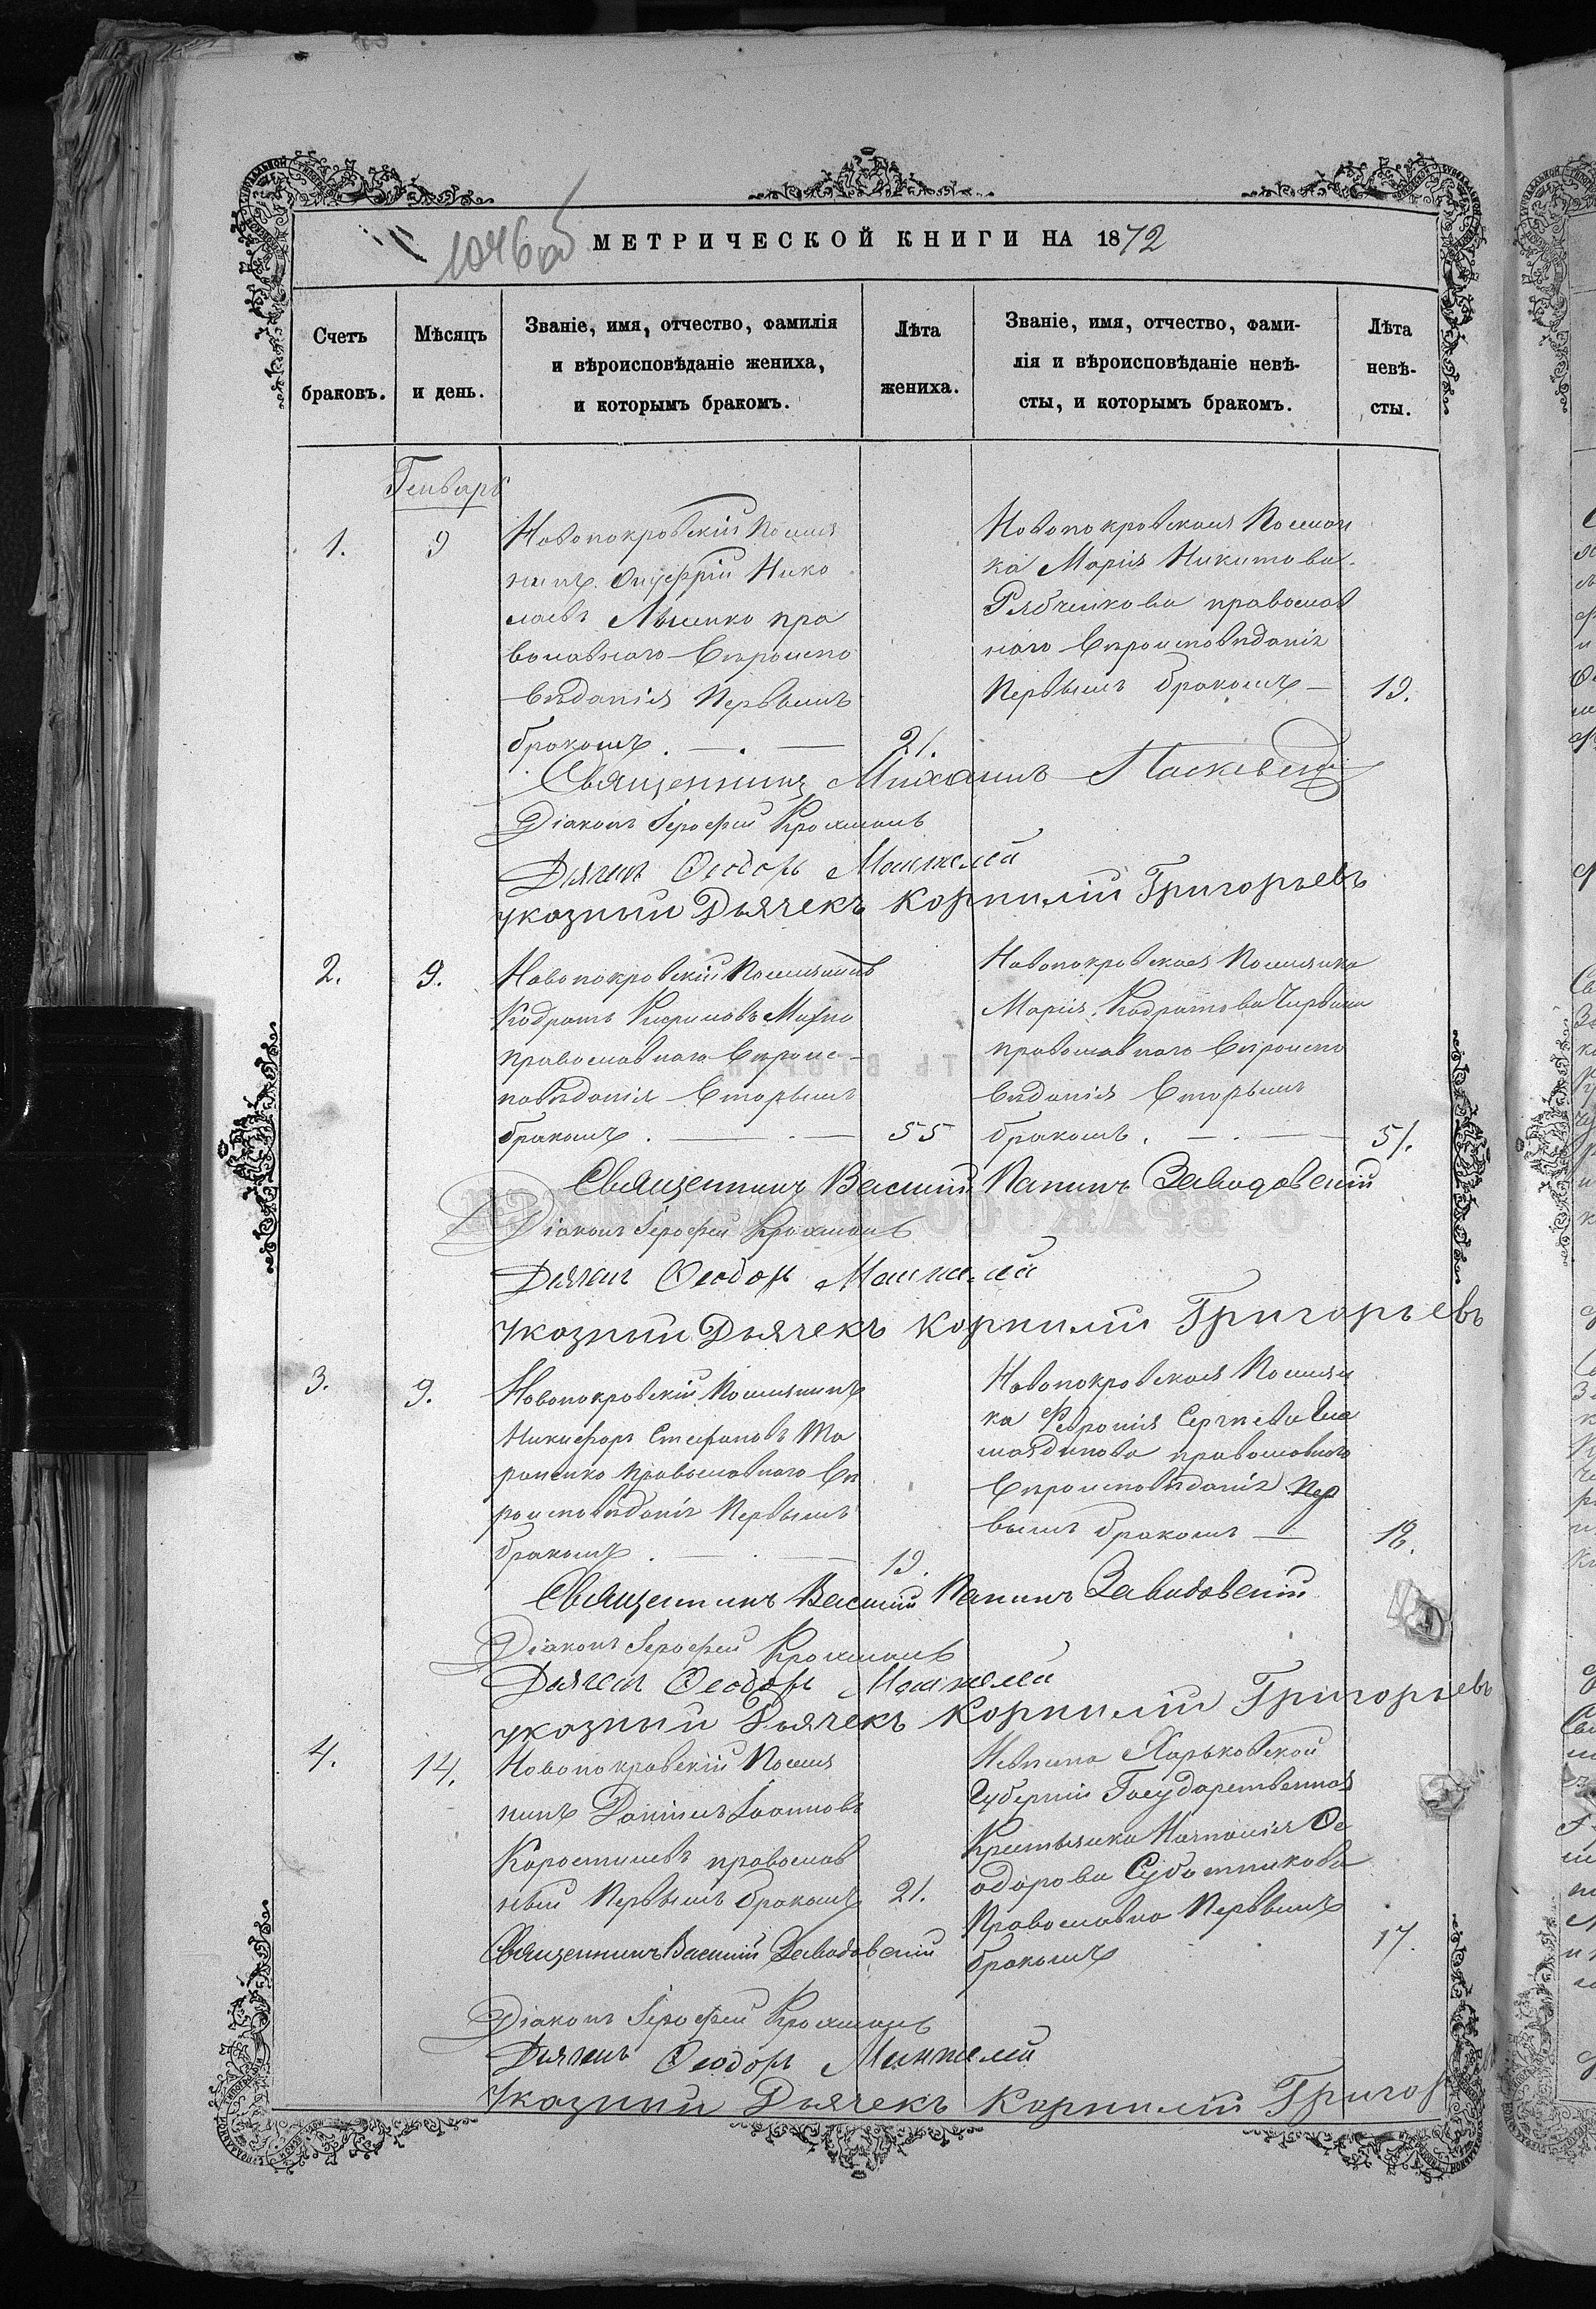 1046 об
МЕТРИЧЕСКОЙ КНИГИ НА 1872
Счетъ браковъ.
Мѣсяцъ и день.
Званіе, имя, отчество, фамилія
и вѣроисповѣданіе жениха,
и которымъ бракомъ.
Лѣта жениха.
Званіе, имя, отчество, фами-
лія и вѣроисповѣданіе невѣ-
сты, и которымъ бракомъ.
Лѣта невѣ-
сты.
Генварь
1.
9
Новопокровскій Поселя
нинъ Онуфрій Нико
лаевъ Лысенко пра
вославнаго вѣроиспо
вѣданія Первымъ
бракомъ. — . —
21.
Новопокровская Поселян
ка Марія Никитова
Рябчикова православ
наго вѣроисповѣданія
Первымъ бракомъ —
19.
Священникъ Михаилъ
Діаконъ Іерофей
Дьячекъ Ѳеодоръ
указный Дьячекъ Корнилій Григорьевъ
2.
9.
Новопокровскій Поселянинъ
Кодратъ
православнаго вѣроис-
повѣданія вторымъ
бракомъ. — . —
55
Новопокровская Поселянка
Марія Кодратова
православнаго вѣроиспо
вѣданія вторымъ
бракомъ. — . —
51.
Священникъ Василій Заводовскій
Діаконъ Іерофей
Дьячекъ Ѳеодоръ
указный Дьячекъ Корнилій Григорьевъ
3.
9.
Новопокровскій Поселянинъ
Никифоръ Стефановъ Та
раненко православнаго вѣ
роисповѣданія Первымъ
бракомъ. — . —
19.
Новопокровская Поселян
ка Февронія Сергѣева
православнаго
вѣроисповѣданія Пер
вымъ бракомъ —
18.
Священникъ Василій Заводовскій
Діаконъ Іерофей
Дьячекъ Ѳеодоръ
указный Дьячекъ Корнилій Григорьевъ
4.
14.
Новопокровскій Поселя
нинъ Даніилъ Іоанновъ
Коростилевъ православ
ный Первымъ бракомъ
21.
Харьковской
Губерніи Государственная
Крестьянка Наталія Ѳе
одорова Суботникова
Православна Первымъ
бракомъ
17.
Священникъ Василій Заводовскій
Діаконъ Іерофей
Дьячекъ Ѳеодоръ
Указный Дьячекъ Корнилій Григор